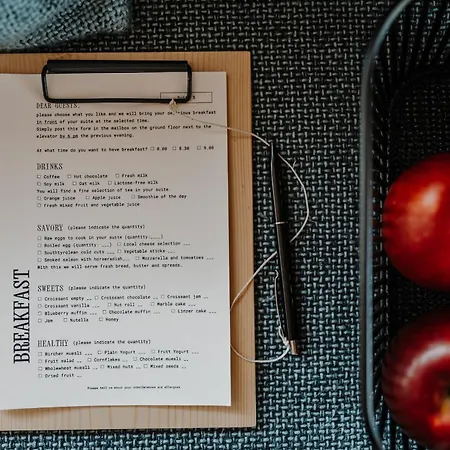 DEAR GUESTS,
please choose what you like and we will bring your delicious breakfast
in front of your suite at the selected time.
Simply post this form in the mailbox on the ground floor next to the
elevator by 6 pm the previous evening.
At what time do you want to have breakfast? ☐ 8.00 ☐ 8.30 ☐ 9.00
DRINKS
☐ Coffee ☐ Hot chocolate ☐ Fresh milk
☐ Soy milk ☐ Oat milk ☐ Lactose-free milk
You will find a fine selection of tea in your suite
☐ Orange juice ☐ Apple juice ☐ Smoothie of the day
☐ Fresh mixed fruit and vegetable juice
SAVORY (please indicate the quantity)
☐ Raw eggs to cook in your suite (quantity:___)
☐ Boiled egg (quantity: ___) ☐ Local cheese selection ___
☐ Southtyrolean cold cuts __ ☐ Vegetable sticks ___
☐ Smoked salmon with horseradish__ ☐ Mozzarella and tomatoes ___
With this we will serve fresh bread, butter and spreads.
SWEETS (please indicate the quantity)
☐ Croissant empty __ ☐ Croissant chocolate __ ☐ Croissant jam __
☐ Croissant vanilla ___ ☐ Nut roll __ ☐ Marble cake ___
☐ Blueberry muffin __ ☐ Chocolate muffin __ ☐ Linzer cake ___
☐ Jam ☐ Nutella ☐ Honey
HEALTHY (please indicate the quantity)
☐ Bircher muesli ___ ☐ Plain Yogurt ___ ☐ Fruit Yogurt ___
☐ Fruit salad __ ☐ Cornflakes __ ☐ Chocolate muesli __
☐ Wholewheat muesli __ ☐ Mixed nuts __ ☐ Mixed seeds __
☐ Dried fruit __
Please tell us about your intolerances and allergies
BREAKFAST